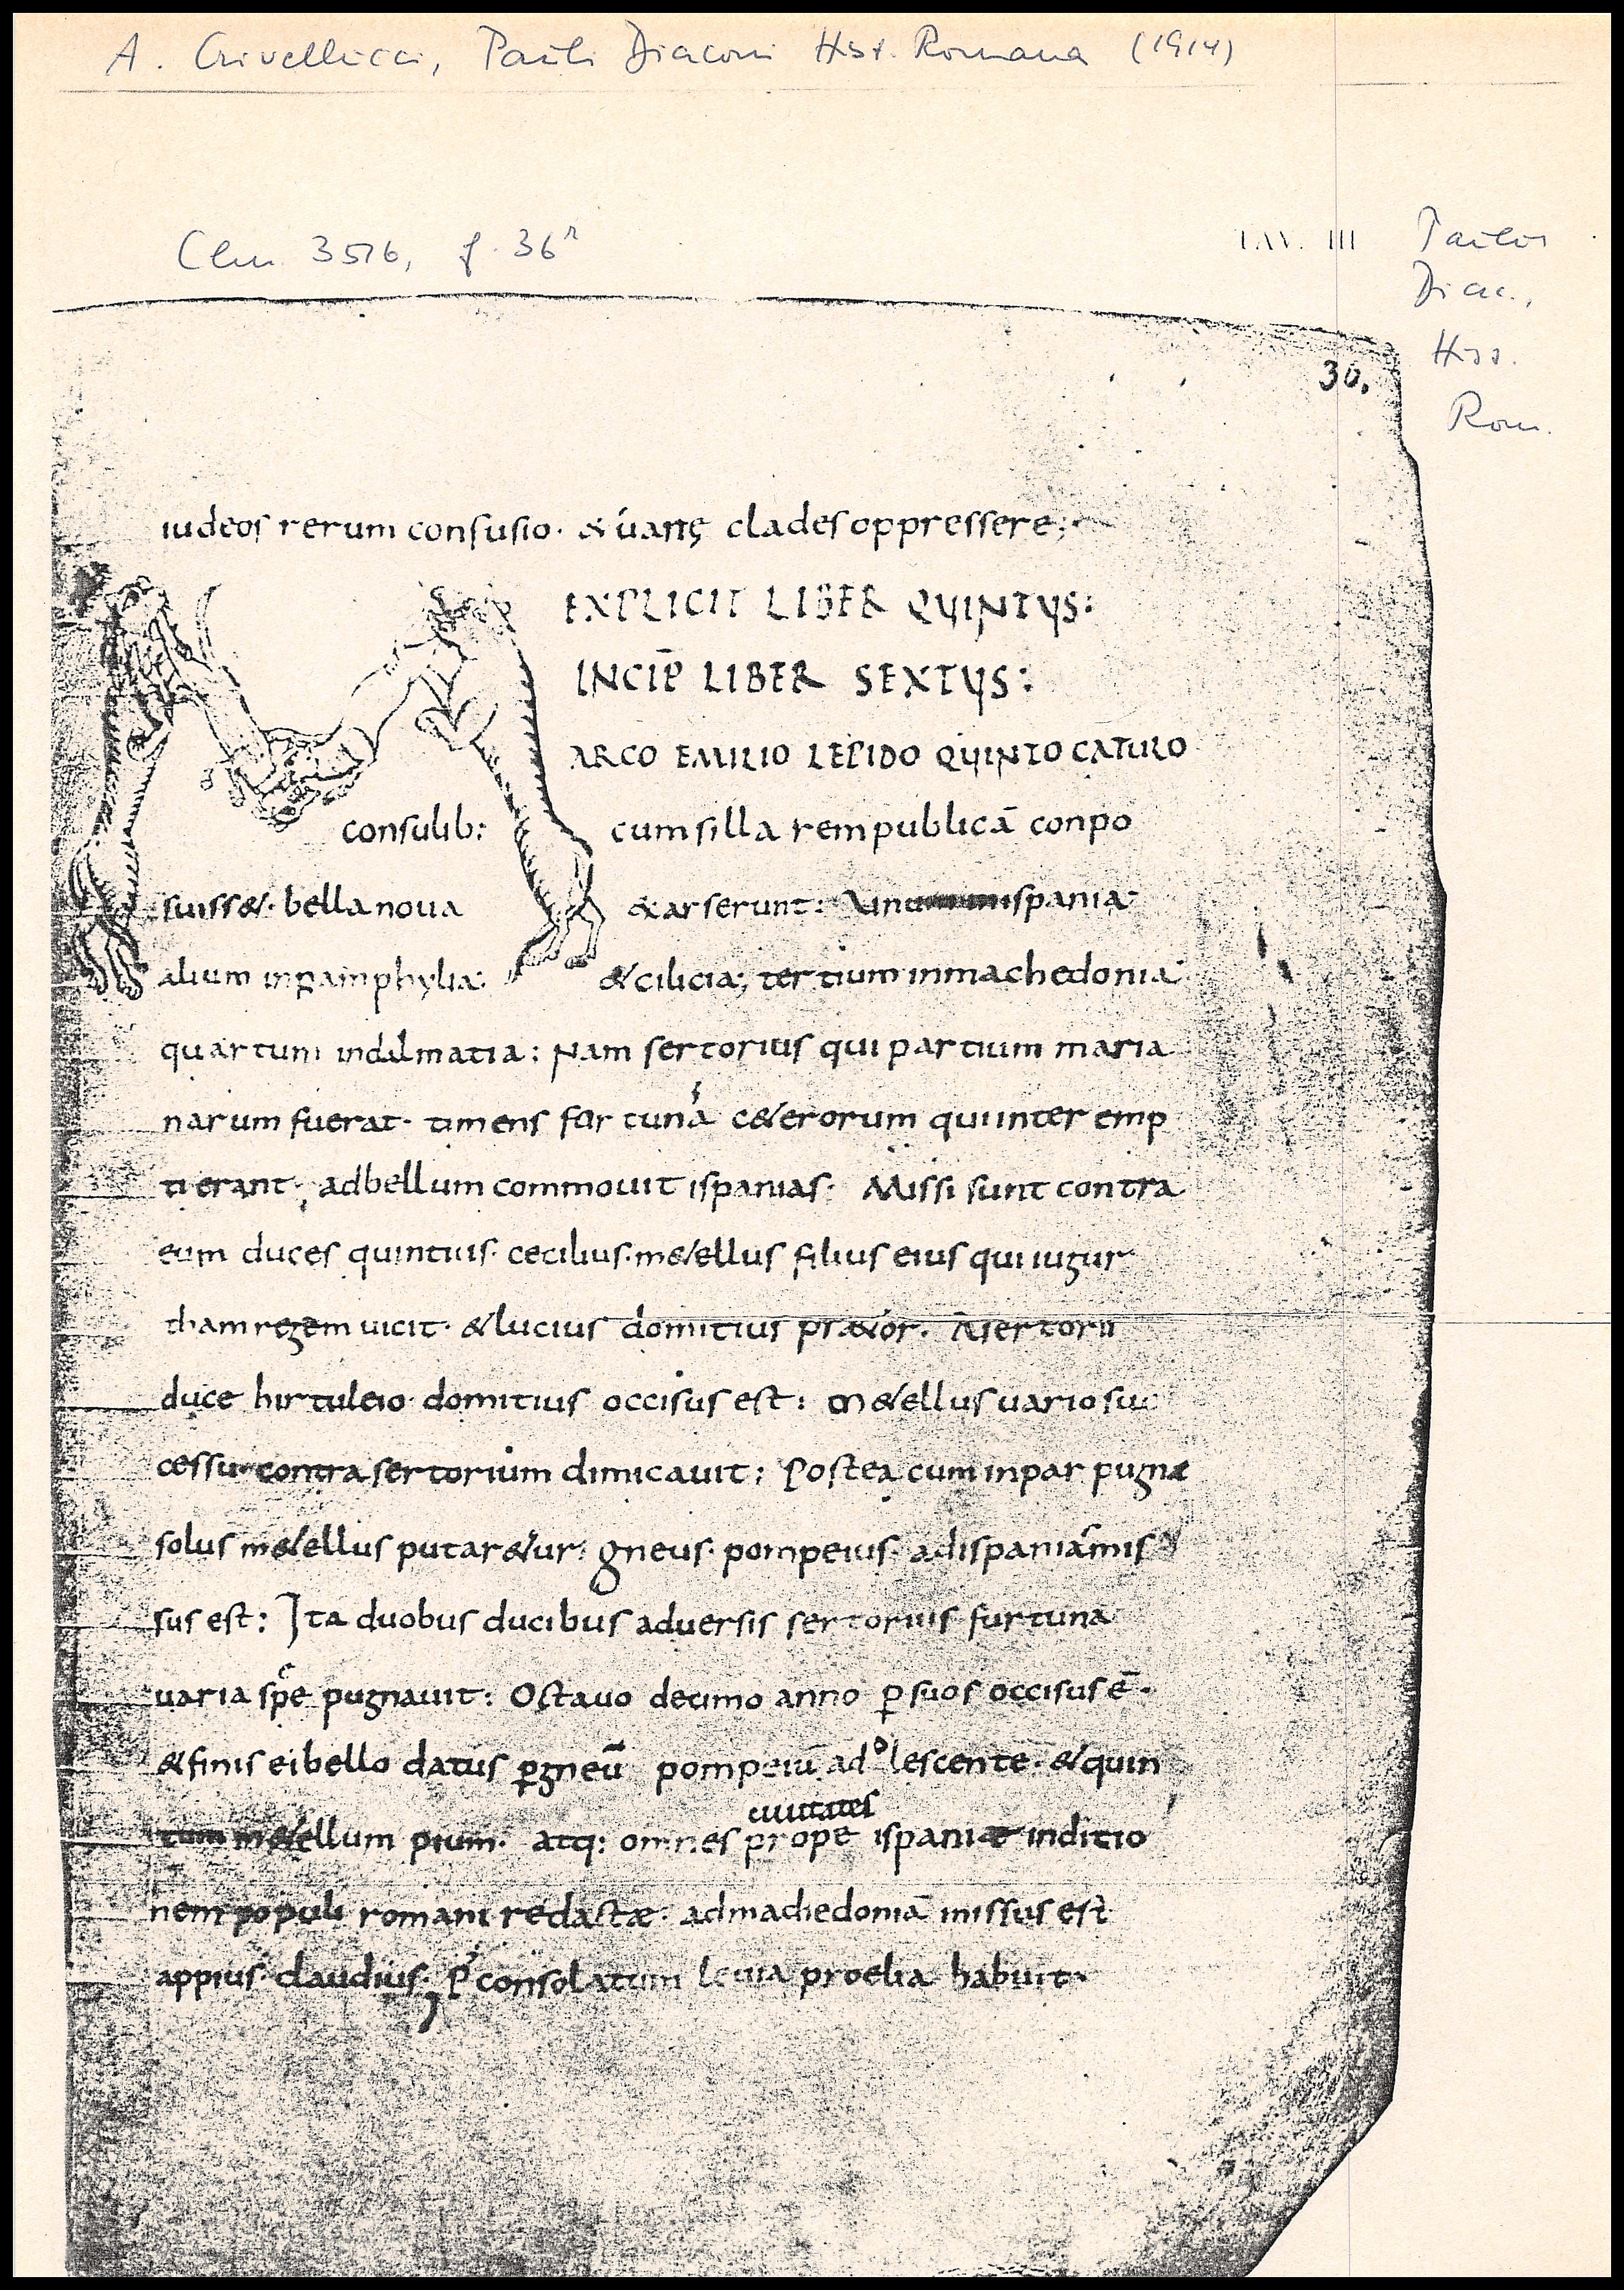 A. Crivellucci, Pauli Diaconi Hist. Romana (1914)
Clm 3516, f. 36r
TAV. III
Paulus
Diac.,
Hist.
Rom.
36.
iudeos rerum confusio· & uarię clades oppressere;
EXPLICIT LIBER QUINTUS:
INCIP̄ LIBER SEXTUS:
MARCO EMILIO LEPIDO QUINTO CATULO
consulib: cum silla rempublicā conpo
suiss&· bella noua & arserunt: Unum ispania·
alium in pamphylia: & cilicia; tertium in machedonia·
quartum in dalmatia: Nam sertorius qui partium maria
narum fuerat· timens fortunā c&erorum qui inter emp
ti erant; ad bellum commouit ispanias· Missi sunt contra
eum duces quintius· cecilius· m&ellus filius eius qui iugur
tham regem uicit· & lucius domitius pr&or· A sertorii
duce hirtuleio· domitius occisus est: M&ellus uario suc
cessu· contra sertorium dimicauit: Postea cum inpar pugnæ
solus m&ellus putar&ur: gneus· pompeius· ad ispaniā mis
sus est: Ita duobus ducibus aduersis sertorius furtuna
uaria spe pugnauit: Octauo decimo anno p suos occisus ē·
& finis ei bello datus p gneū pompeiū adolescente· & quin
ciuitates
tum m&ellum pium· atq: omnes prope ispaniæ in ditio
nem populi romani redactæ· ad machedoniā missus est
appius· claudius· P consolatum leuia proelia habuit·